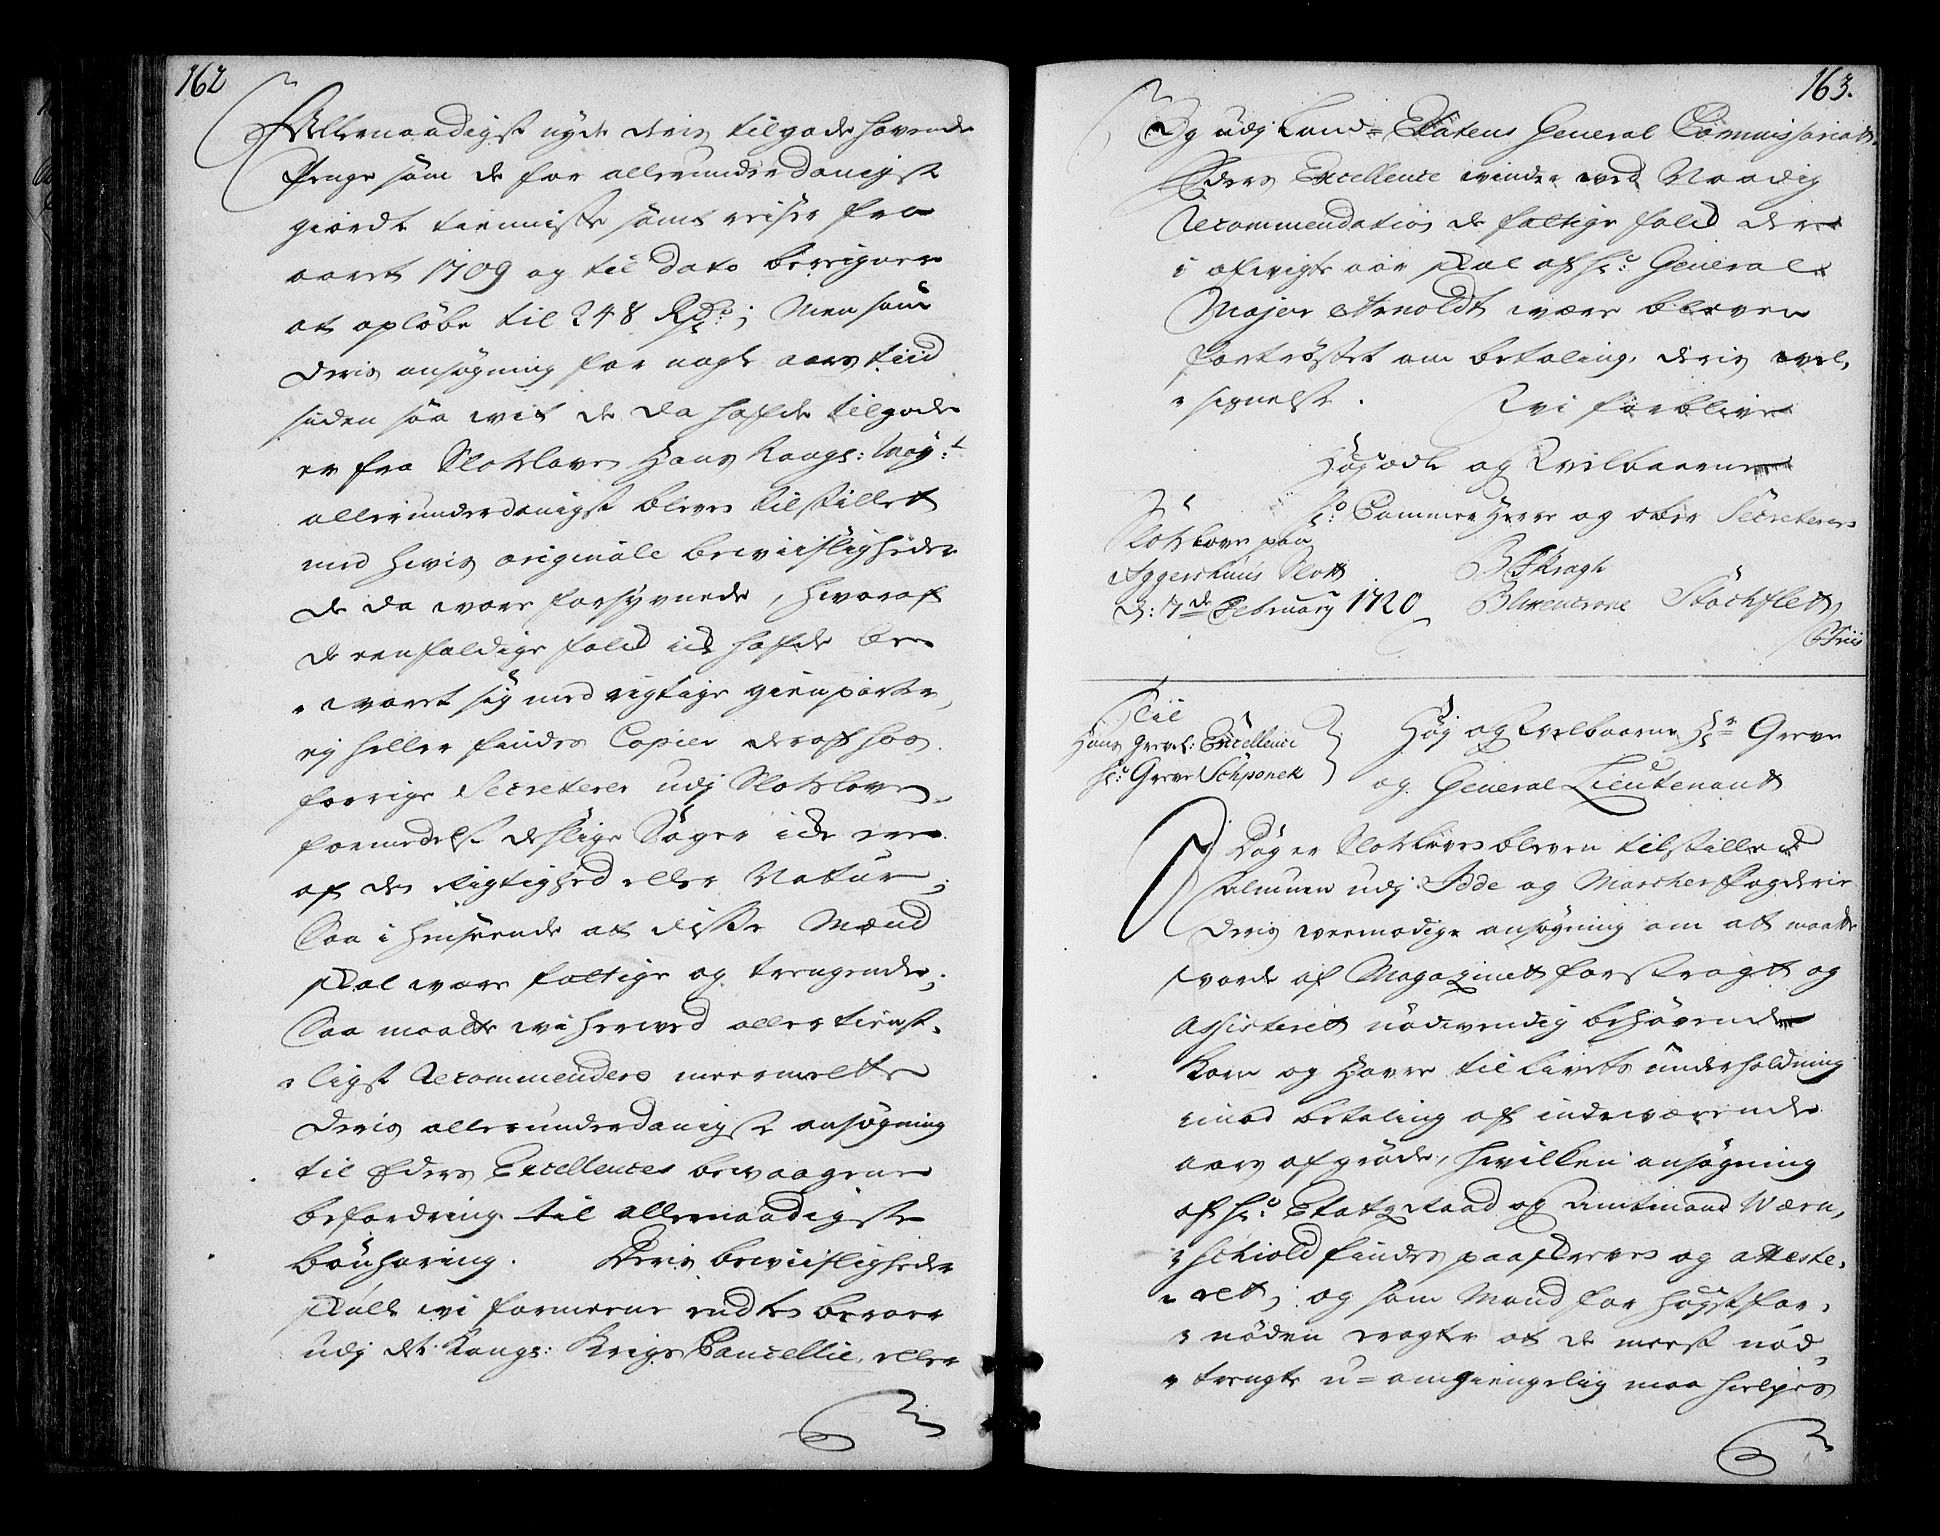 162
Allernaadigst nyde deris tilgode havende
Penge som de for allerunderdanigst
giordt tienniste samt reiser fra
aaret 1709 og til dato beregner
at opløbe til 248 Rdr; Men som
deris ansøgning for nogle aars tiid
siden saa vit de da hafde tilgode
er fra Slotzloven Hans Kongs: May:t
allerunderdanigst bleven tilstillet
med hvis originale beviisligheder
de da vare forsynede, hvoraf
de eenfoldige folk icke hafde be-
waret sig med rigtige gienparter,
ej heller findes Copier deraf hos
forrige Secreterer udj Slotzloven,
formedelst deslige Sager icke ere
af den Rigtighed eller Natur;
Saa i henseende at disse Mænd
skal være fattige og trengende;
Saa maatte wi herved aller tienst-
ligst Recommendere meermelte
deris allerunderdanigste ansøgning
til Eders Excellences bewaagene
befordring til allernaadigste
bønhøring. Deris beviisligheder
skulle wi formeene endten beroer
udj det Kongs: Krigs Cancellie, eller
163.
Og udj Land-Etatens General Commissariatt.
Eders Excellence winder ved Naadig
Recommendation de fattige folk der
i afvigte aar skal af Hr: General
Major Arnoldt være bleven
fortrøstet om betaling, deris vel-
signelse. Wi forblive
Høyædle og Welbaarne
Hr: Cammer Herre og ober Secreterers
Slotzloven paa
Aggershuus Slott
d: 7de February 1720
B Kragh
Blixencrone Stockflett
Friis
Til
Hans Grevel: Excellence
Hr: Greve Schponek
Høy og Welbaarne Hr Greve
og General Lieutenant
Dog er Slotzloven bleven tilstillede
almuen udj Idde og Marcher fogderie
deris veemodige ansøgning om att maatte
vorde af Magazinet forstragt og
Assisteret nødvendig behøvende
Korn og Havre til livets underholdning
imod betaling af indeværende
aars afgrøde, hvilken ansøgning
af Hr: Etatz Raad og Amtmand Wæren-
schiold findes paaskreven og atteste-
ret; og som Mand for høyst for-
nøden eragter at de meest nød-
trengte u-omgiengelig maa hielpes